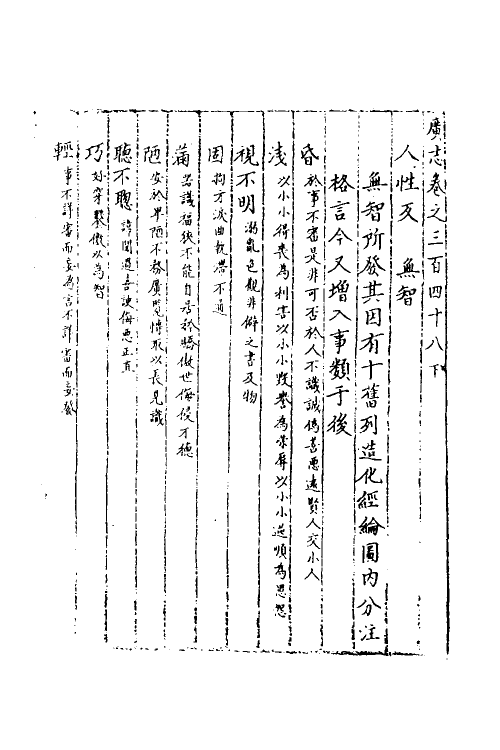 廣志卷之三百四十八下
人性反 無智
無智所發其因有十舊列造化經綸圖內分注
格言今又增入事類于後
昏 於事不審是非可否於人不識誠偽善惡遠賢人交小人
淺 以小小得喪為利害以小小毀譽為榮辱以小小逆順為恩怨
視不明 溺亂色觀非僻之書及物
固 拘方泥曲執滯不通
滿 器識褊狹不能自居矜驕傲世侮慢才德
陋 安於卑陋不務廣覽博取以長見識
聽不聰 諱聞過喜諛侮惡正直
巧 好穿鑿傲以為智
輕 事不詳審而妄為言不詳審而妄發